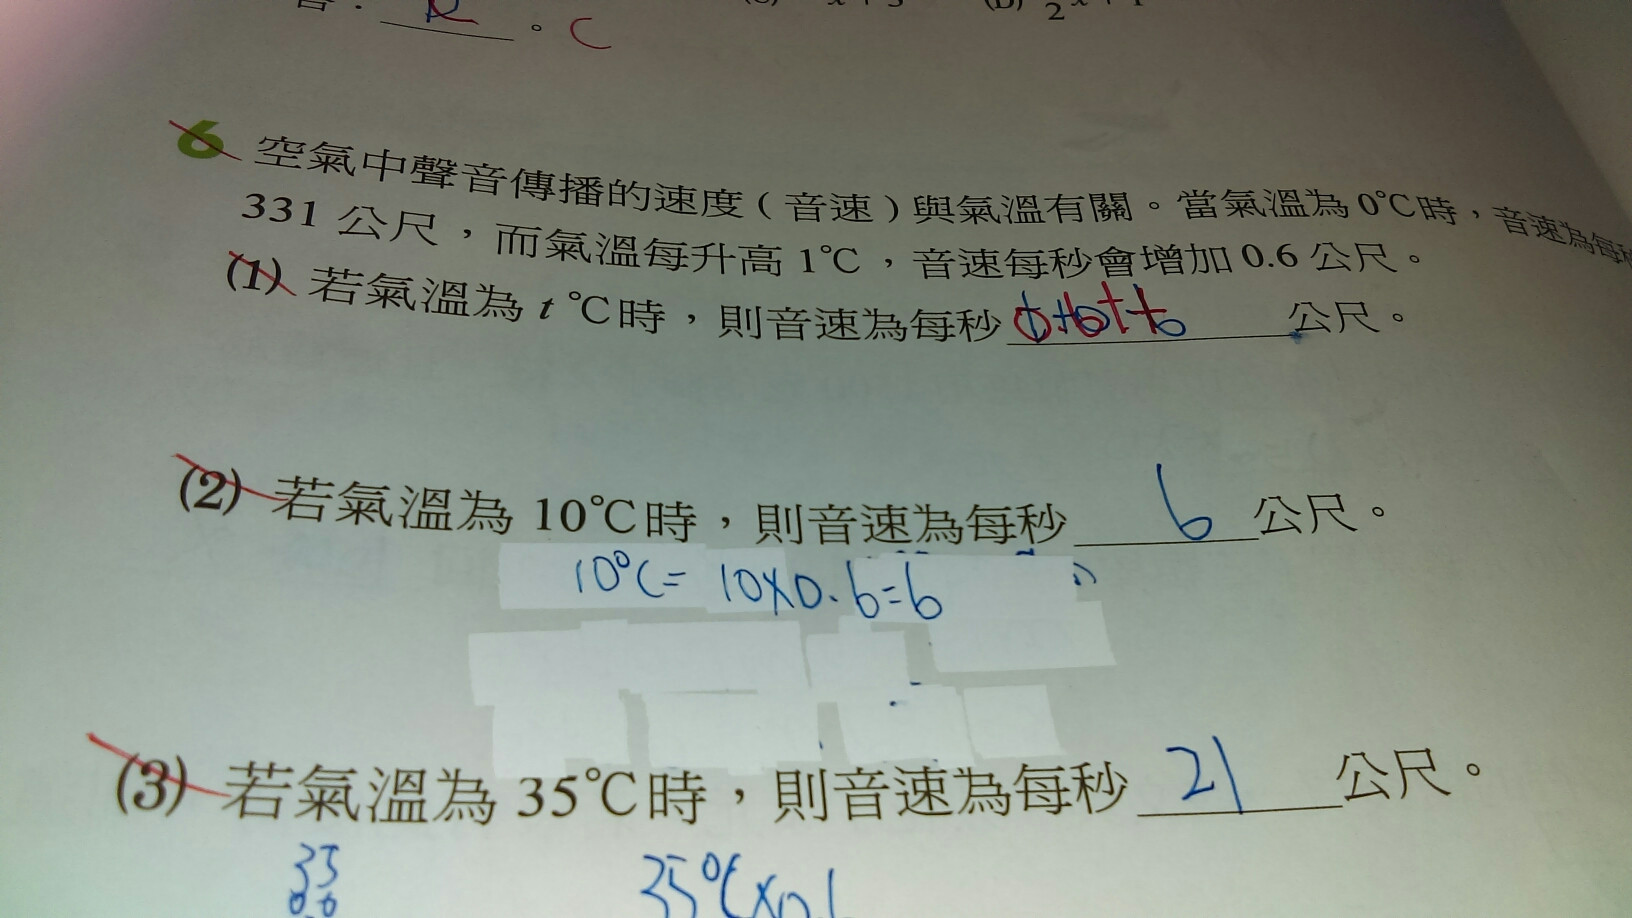 R 。 C
6 空氣中聲音傳播的速度(音速)與氣溫有關。當氣溫為 0℃時，音速為每秒
331 公尺，而氣溫每升高 1℃，音速每秒會增加 0.6 公尺。
(1) 若氣溫為 t ℃時，則音速為每秒 公尺。
(2) 若氣溫為 10℃時，則音速為每秒 6 公尺。
10℃= 10×0.6=6
(3) 若氣溫為 35℃時，則音速為每秒 21 公尺。
35 35℃×0.6
0.6